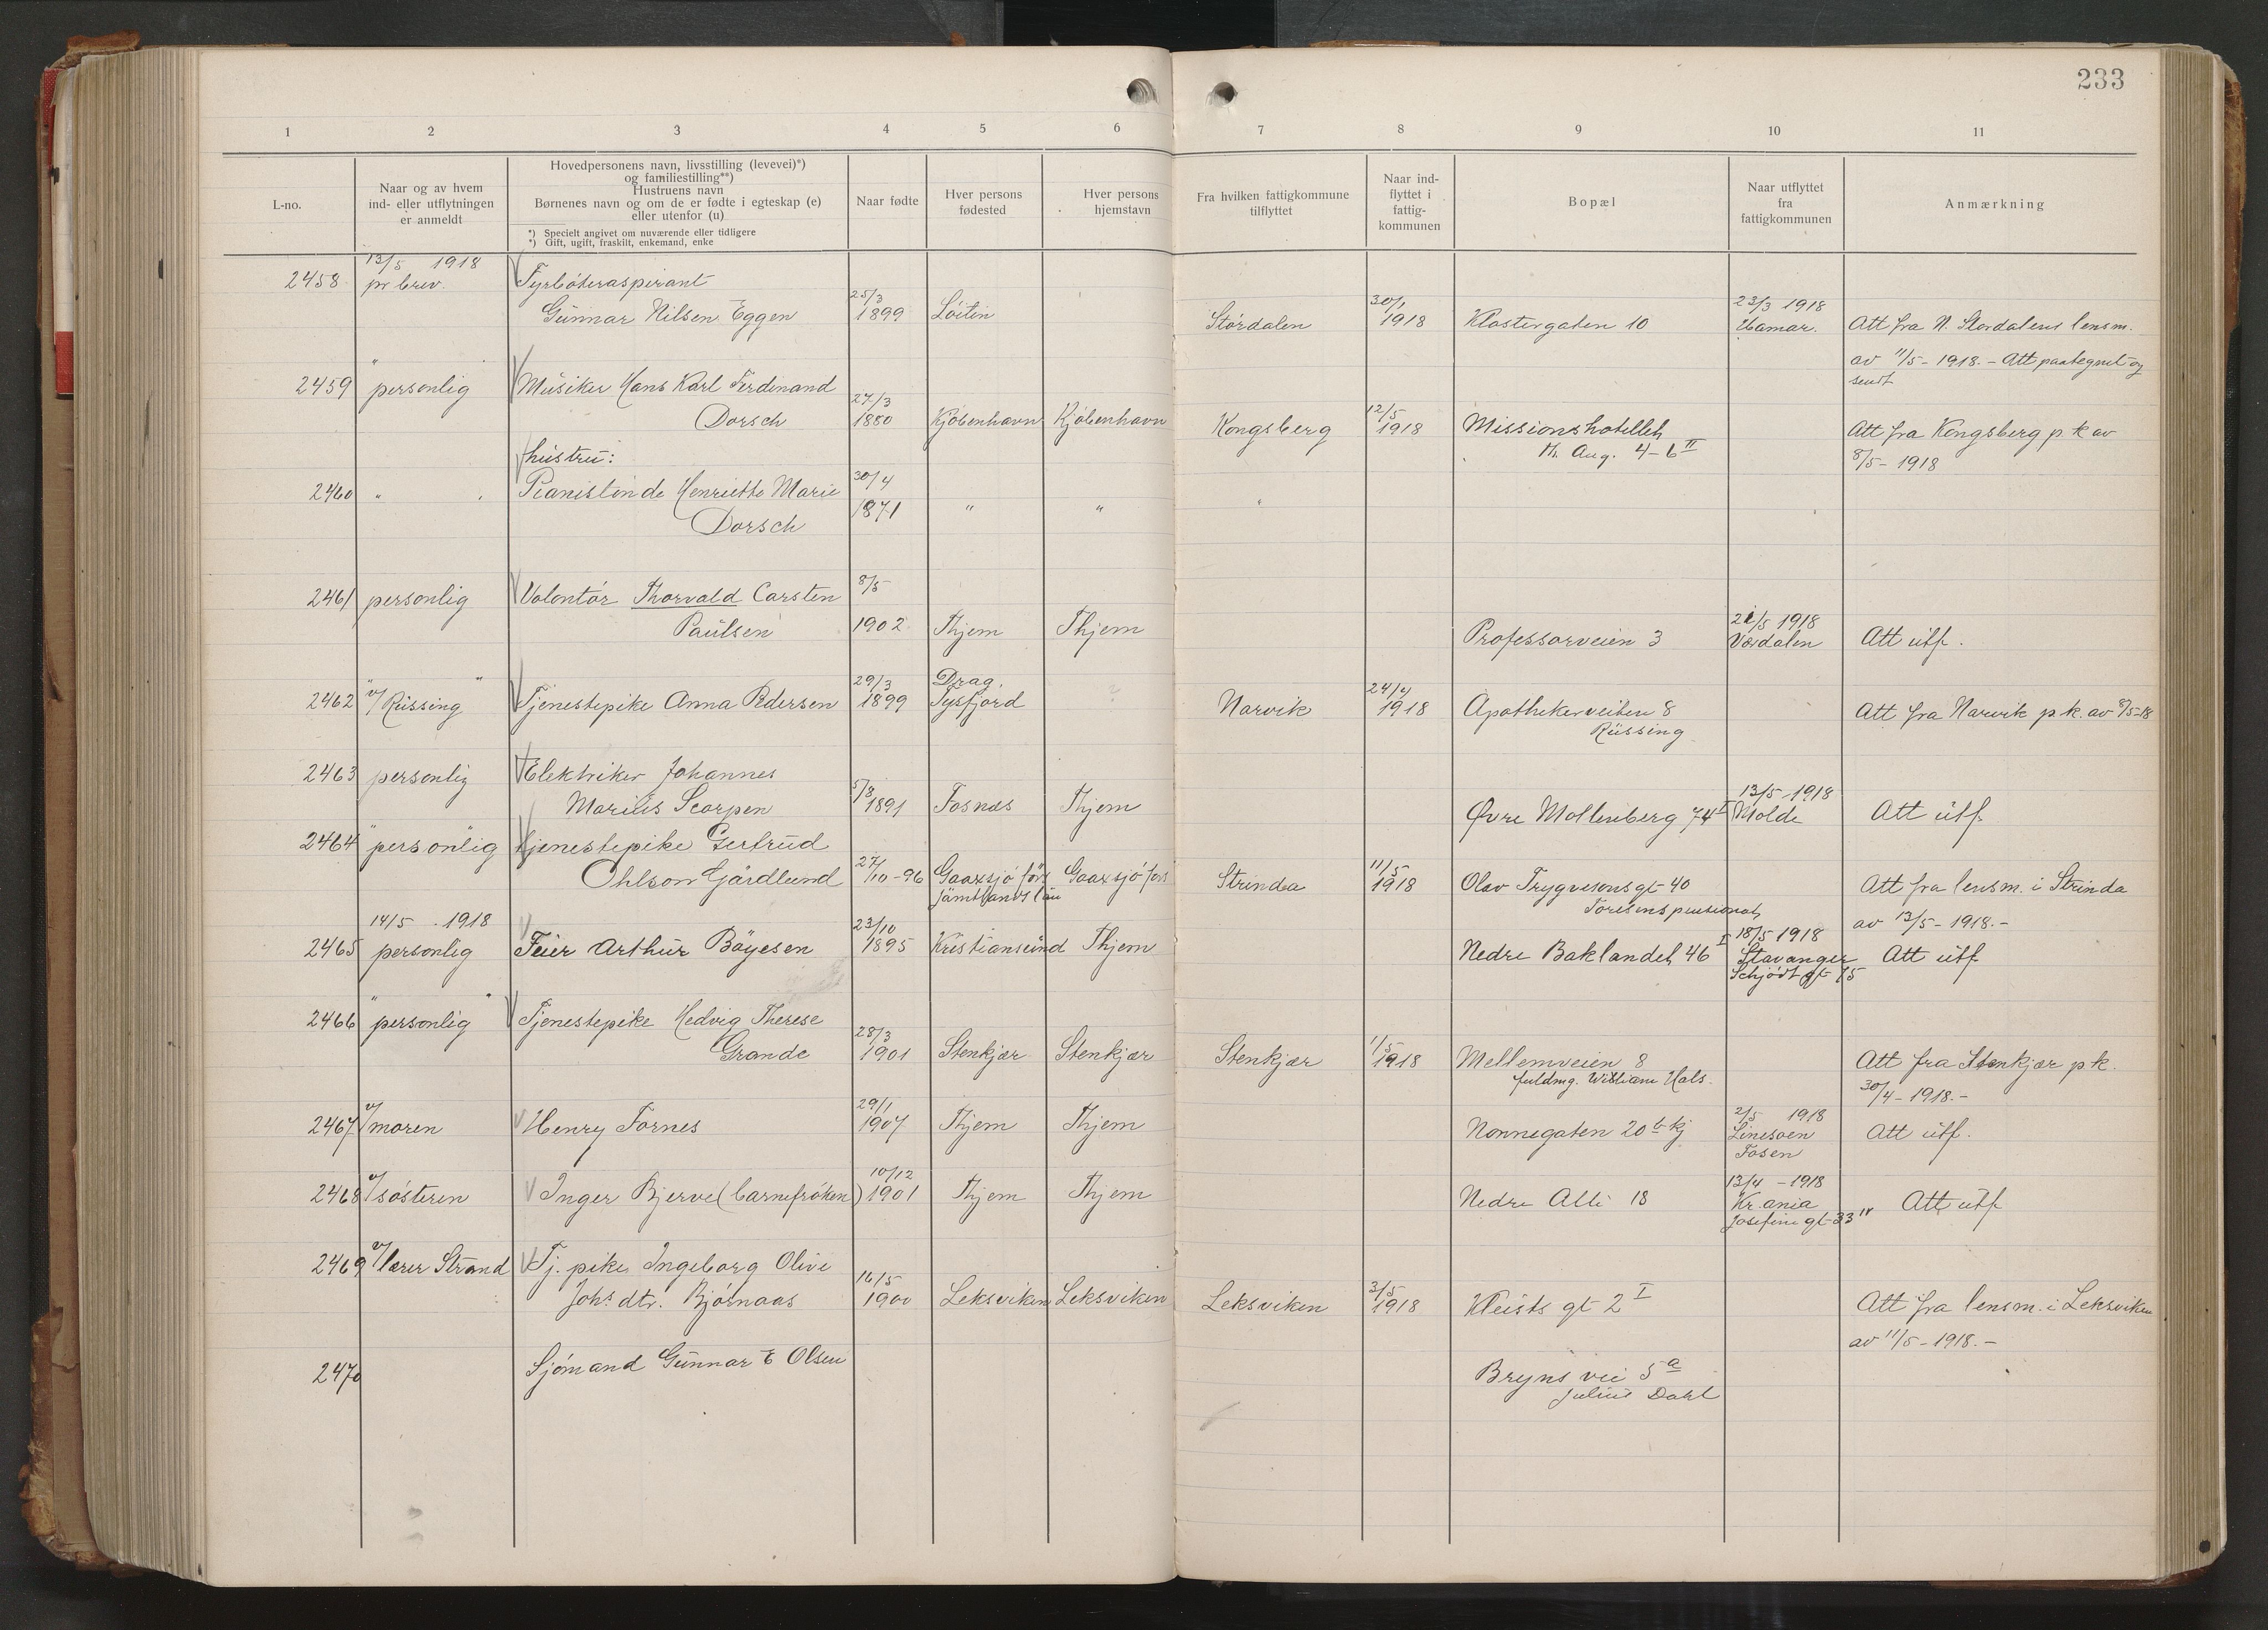 233
1 2 3 4 5 6 7 8 9 10 11
L-no.
Naar og av hvem
ind- eller utflytningen
er anmeldt
Hovedpersonens navn, livsstilling (levevei)*)
og familiestilling**)
Hustruens navn
Børnenes navn og om de er fødte i egteskap (e)
eller utenfor (u)
*) Specielt angivet om nuværende eller tidligere
*) Gift, ugift, fraskilt, enkemand, enke
Naar fødte
Hver persons
fødested
Hver persons
hjemstavn
Fra hvilken fattigkommune
tilflyttet
Naar ind-
flyttet i
fattig-
kommunen
Bopæl
Naar utflyttet
fra
fattigkommunen
Anmærkning
13/5 1918
2458 pr brev. Fyrbøteraspirant
Gunnar Nilsen Eggen 25/3 1899 Løiten Stördalen 30/1 1918 Klostergaten 10 23/3 1918 Hamar. Att fra N. Stordalens lensm.
av 11/5 - 1918. - Att paategnet og
sendt
2459 " personlig Musiker Hans Karl Ferdinand
Dorsch 27/3 1880 Kjöbenhavn Kjöbenhavn Kongsberg 12/5 1918 Missionshotellet Att fra Kongsberg p k av
Th. Aug. 4-6 II 8/5 - 1918
hustru:
2460 " " Pianistinde Henriette Marie
Dorsch 30/4 1871 " " "
2461 personlig Volontør Thorvald Carsten
Paulsen 8/5 1902 Thjem Thjem Professorveien 3 21/5 1918 Værdalen Att utf.
2462 " " v/ Rüssing Tjenestepike Anna Pedersen 29/3 1899 Drag, Tysfjord ? Narvik 24/4 1918 Apothekerveiten 8 Att fra Narvik p.k. av 8/5-18
Rüssing
2463 personlig Elektriker Johannes
Marius Scarpen 5/8 1891 Fosnæs Thjem Øvre Mollenberg 74 I 13/5 - 1918 Molde Att utf
2464 " " personlig Tjenestepike Gertrud
Ohlson Gärdlund 27/10-96 Gaaxsjö förs Gaaxsjö fors Strinda 11/5 1918 Olav Trygvesonsgt 40 Att fra lensm. i Strinda
Jämtlands län Toresens pensionat av 13/5 - 1918. -
14/5 1918
2465 personlig Feier Arthur Böyesen 23/10 1895 Kristiansund Thjem Nedre Baklandet 46 I 18/5 1918 Stavanger Att utf
Schjödt gt 15
2466 " " personlig Tjenestepike Hedvig Therese
Grande 28/3 1901 Stenkjær Stenkjær Stenkjær 1/5 1918 Mellemveien 8 Att fra Stenkjær p k.
fuldmg. William Hals. 30/4 - 1918. -
2467 v/ moren Henry Fornes 29/1 1907 Thjem Thjem Nonnegaten 20 b kj 2/5 1918 Linesøen Att utf.
Fosen
2468 v/ søsteren Inger Bjerve (barnefrøken) 10/12 1901 Thjem Thjem Nedre Allé 18 13/4 - 1918 Kr.ania Att utf
Josefine gt 33 IV
2469 v/ lærer Strand Tj. pike Ingeborg Olive
Johs dtr. Bjørnaas 16/5 1900 Leksviken Leksviken Leksviken 3/5 1918 Kleists gt 2 I Att fra lensm. i Leksviken
av 11/5 - 1918. -
2470 Sjømand Gunnar E Olsen Bryns vei 5 a
Julius Dahl